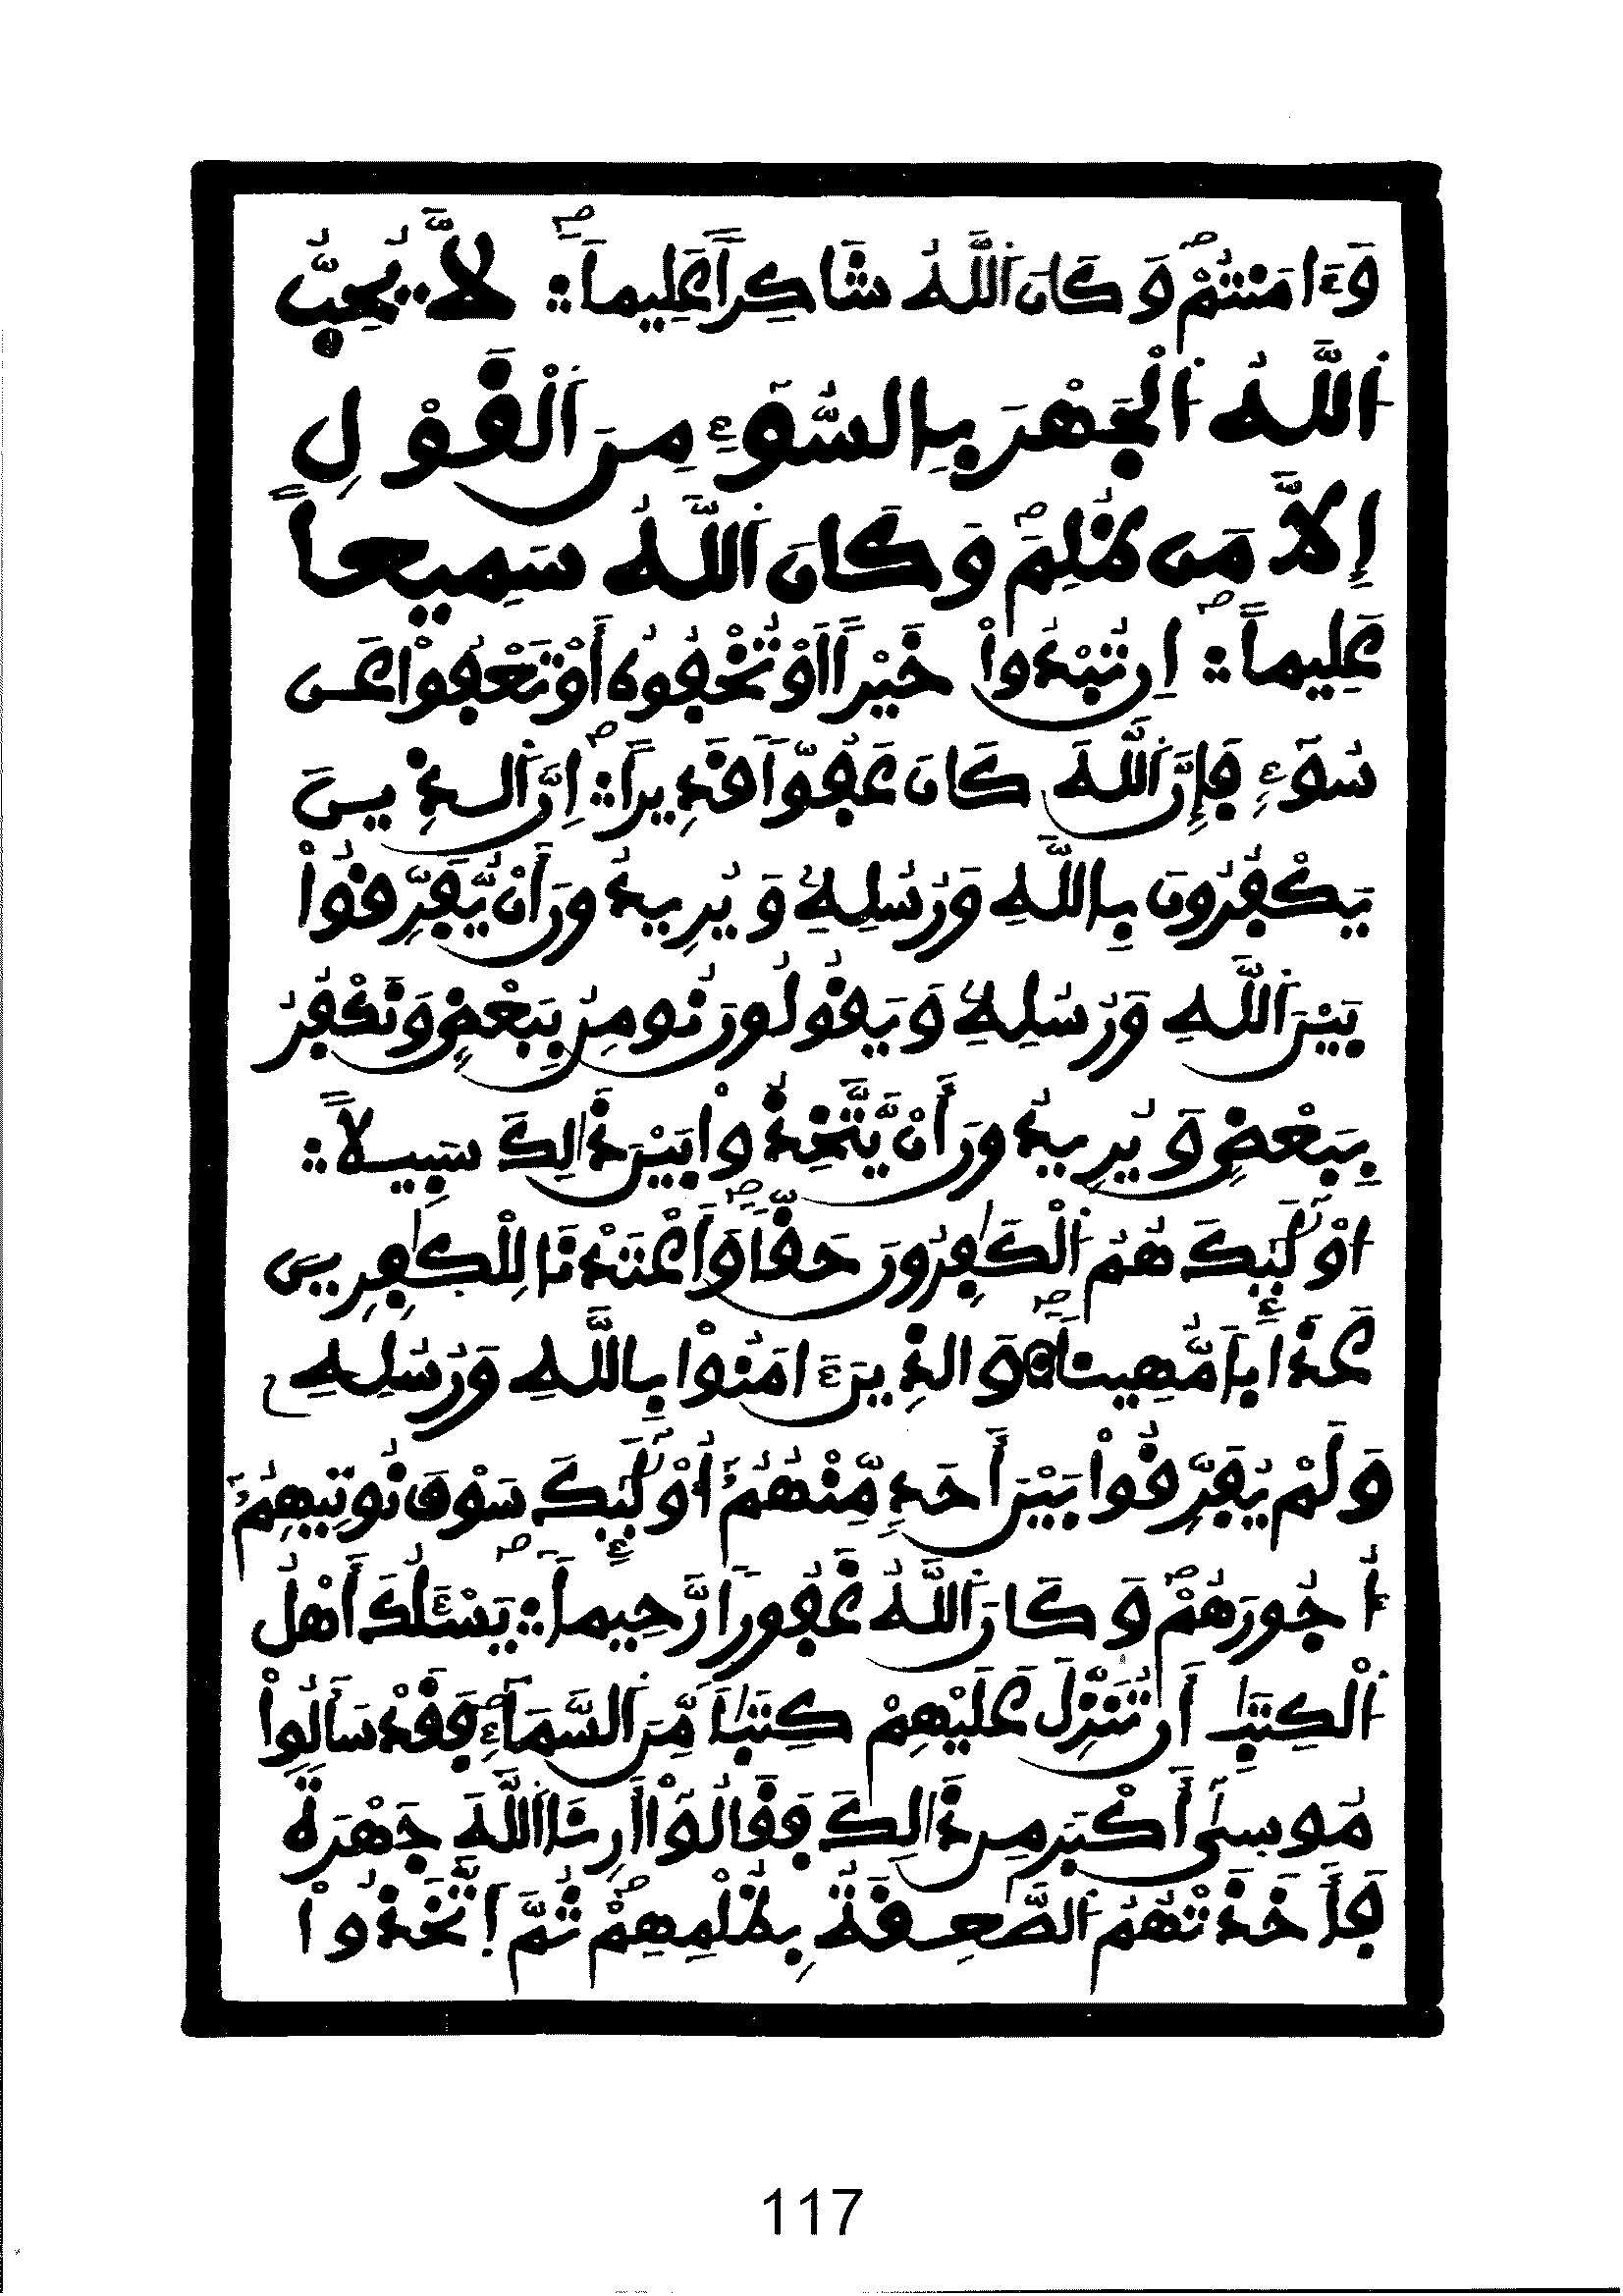 وَءَامَنتُمْ وَكَانَ اَللَّهُ شَاكِراً عَلِيماً ؞ لَّا يُحِبُّ
اَللَّهُ اَلْجَهْرَ بِالسُّوٓءِ مِنَ اَلْقَوْلِ
إِلَّا مَن ظُلِمَ وَكَانَ اَللَّهُ سَمِيعاً
عَلِيماً ؞ اِن تُبْدُواْ خَيْراً اَوْ تُخْفُوهُ أَوْ تَعْفُواْ عَن
سُوٓءٍ فَإِنَّ اَللَّهَ كَانَ عَفُوّاً قَدِيراً ؞ اِنَّ اَلذِينَ
يَكْفُرُونَ بِاللَّهِ وَرُسُلِهِۦ وَيُرِيدُونَ أَنْ يُّفَرِّقُواْ
بَيْنَ اَللَّهِ وَرُسُلِهِۦ وَيَقُولُونَ نُومِنُ بِبَعْضٍ وَنَكْفُرُ
بِبَعْضٍ وَيُرِيدُونَ أَنْ يَّتَّخِذُواْ بَيْنَ ذَٰلِكَ سَبِيلاً ؞
اوْلَٰٓئِكَ هُمُ اَلْكَٰفِرُونَ حَقّاً وَأَعْتَدْنَا لِلْكَٰفِرِينَ
عَذَاباً مُّهِيناً وَالذِينَ ءَامَنُواْ بِاللَّهِ وَرُسُلِهِۦ
وَلَمْ يُفَرِّقُواْ بَيْنَ أَحَدٍ مِّنْهُمُۥٓ أُوْلَٰٓئِكَ سَوْفَ نُوتِيهِمُۥٓ
أُجُورَهُمْ وَكَانَ اَللَّهُ غَفُوراً رَّحِيماً ؞ يَسْـَٔلُكَ أَهْلُ
اُلْكِتَٰبِ أَن تُنَزِّلَ عَلَيْهِمْ كِتَٰباً مِّنَ اَلسَّمَآءِ فَقَدْ سَأَلُواْ
مُوسىٰٓ أَكْبَرَ مِن ذَٰلِكَ فَقَالُوٓاْ أَرِنَا اَللَّهَ جَهْرَةً
فَأَخَذَتْهُمُ اُلصَّٰعِقَةُ بِظُلْمِهِمْ ثُمَّ اَتَّخَذُواْ
117